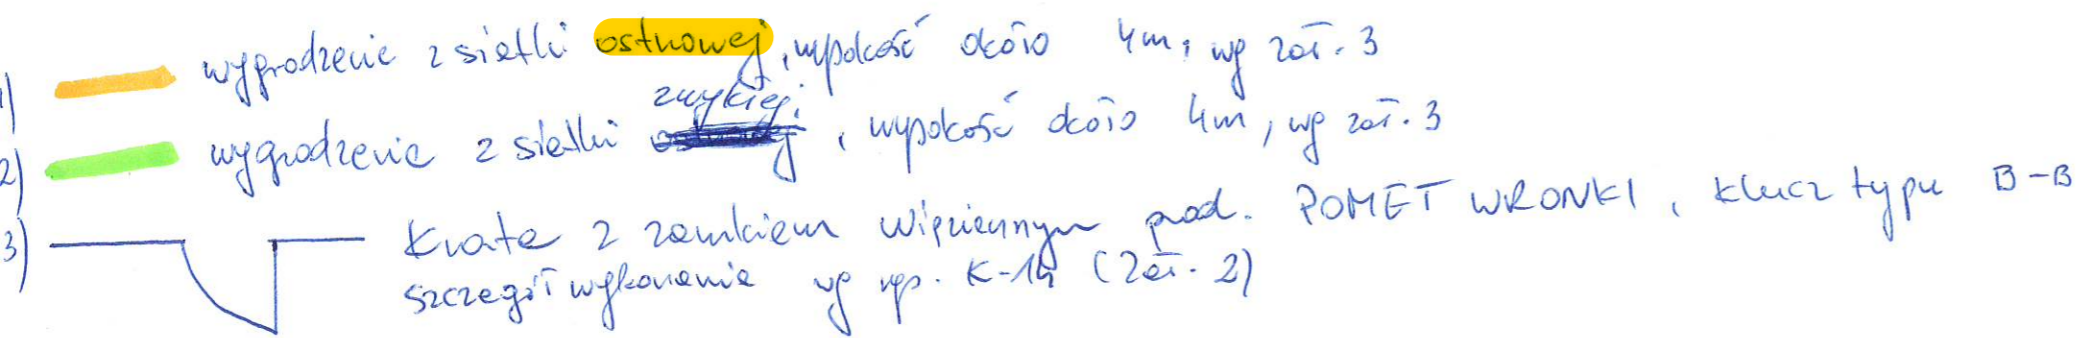 1) wygrodzenie z siatki ostnowej, wysokość około 4m, wg zał. 3
zwykłej
2) wygrodzenie z siatki , wysokość około 4m, wg zał. 3
3) Krata z zamkiem więziennym prod. POMET WRONKI, klucz typu B-B
szczegół wykonania wg rys. K-14 (Zał. 2)